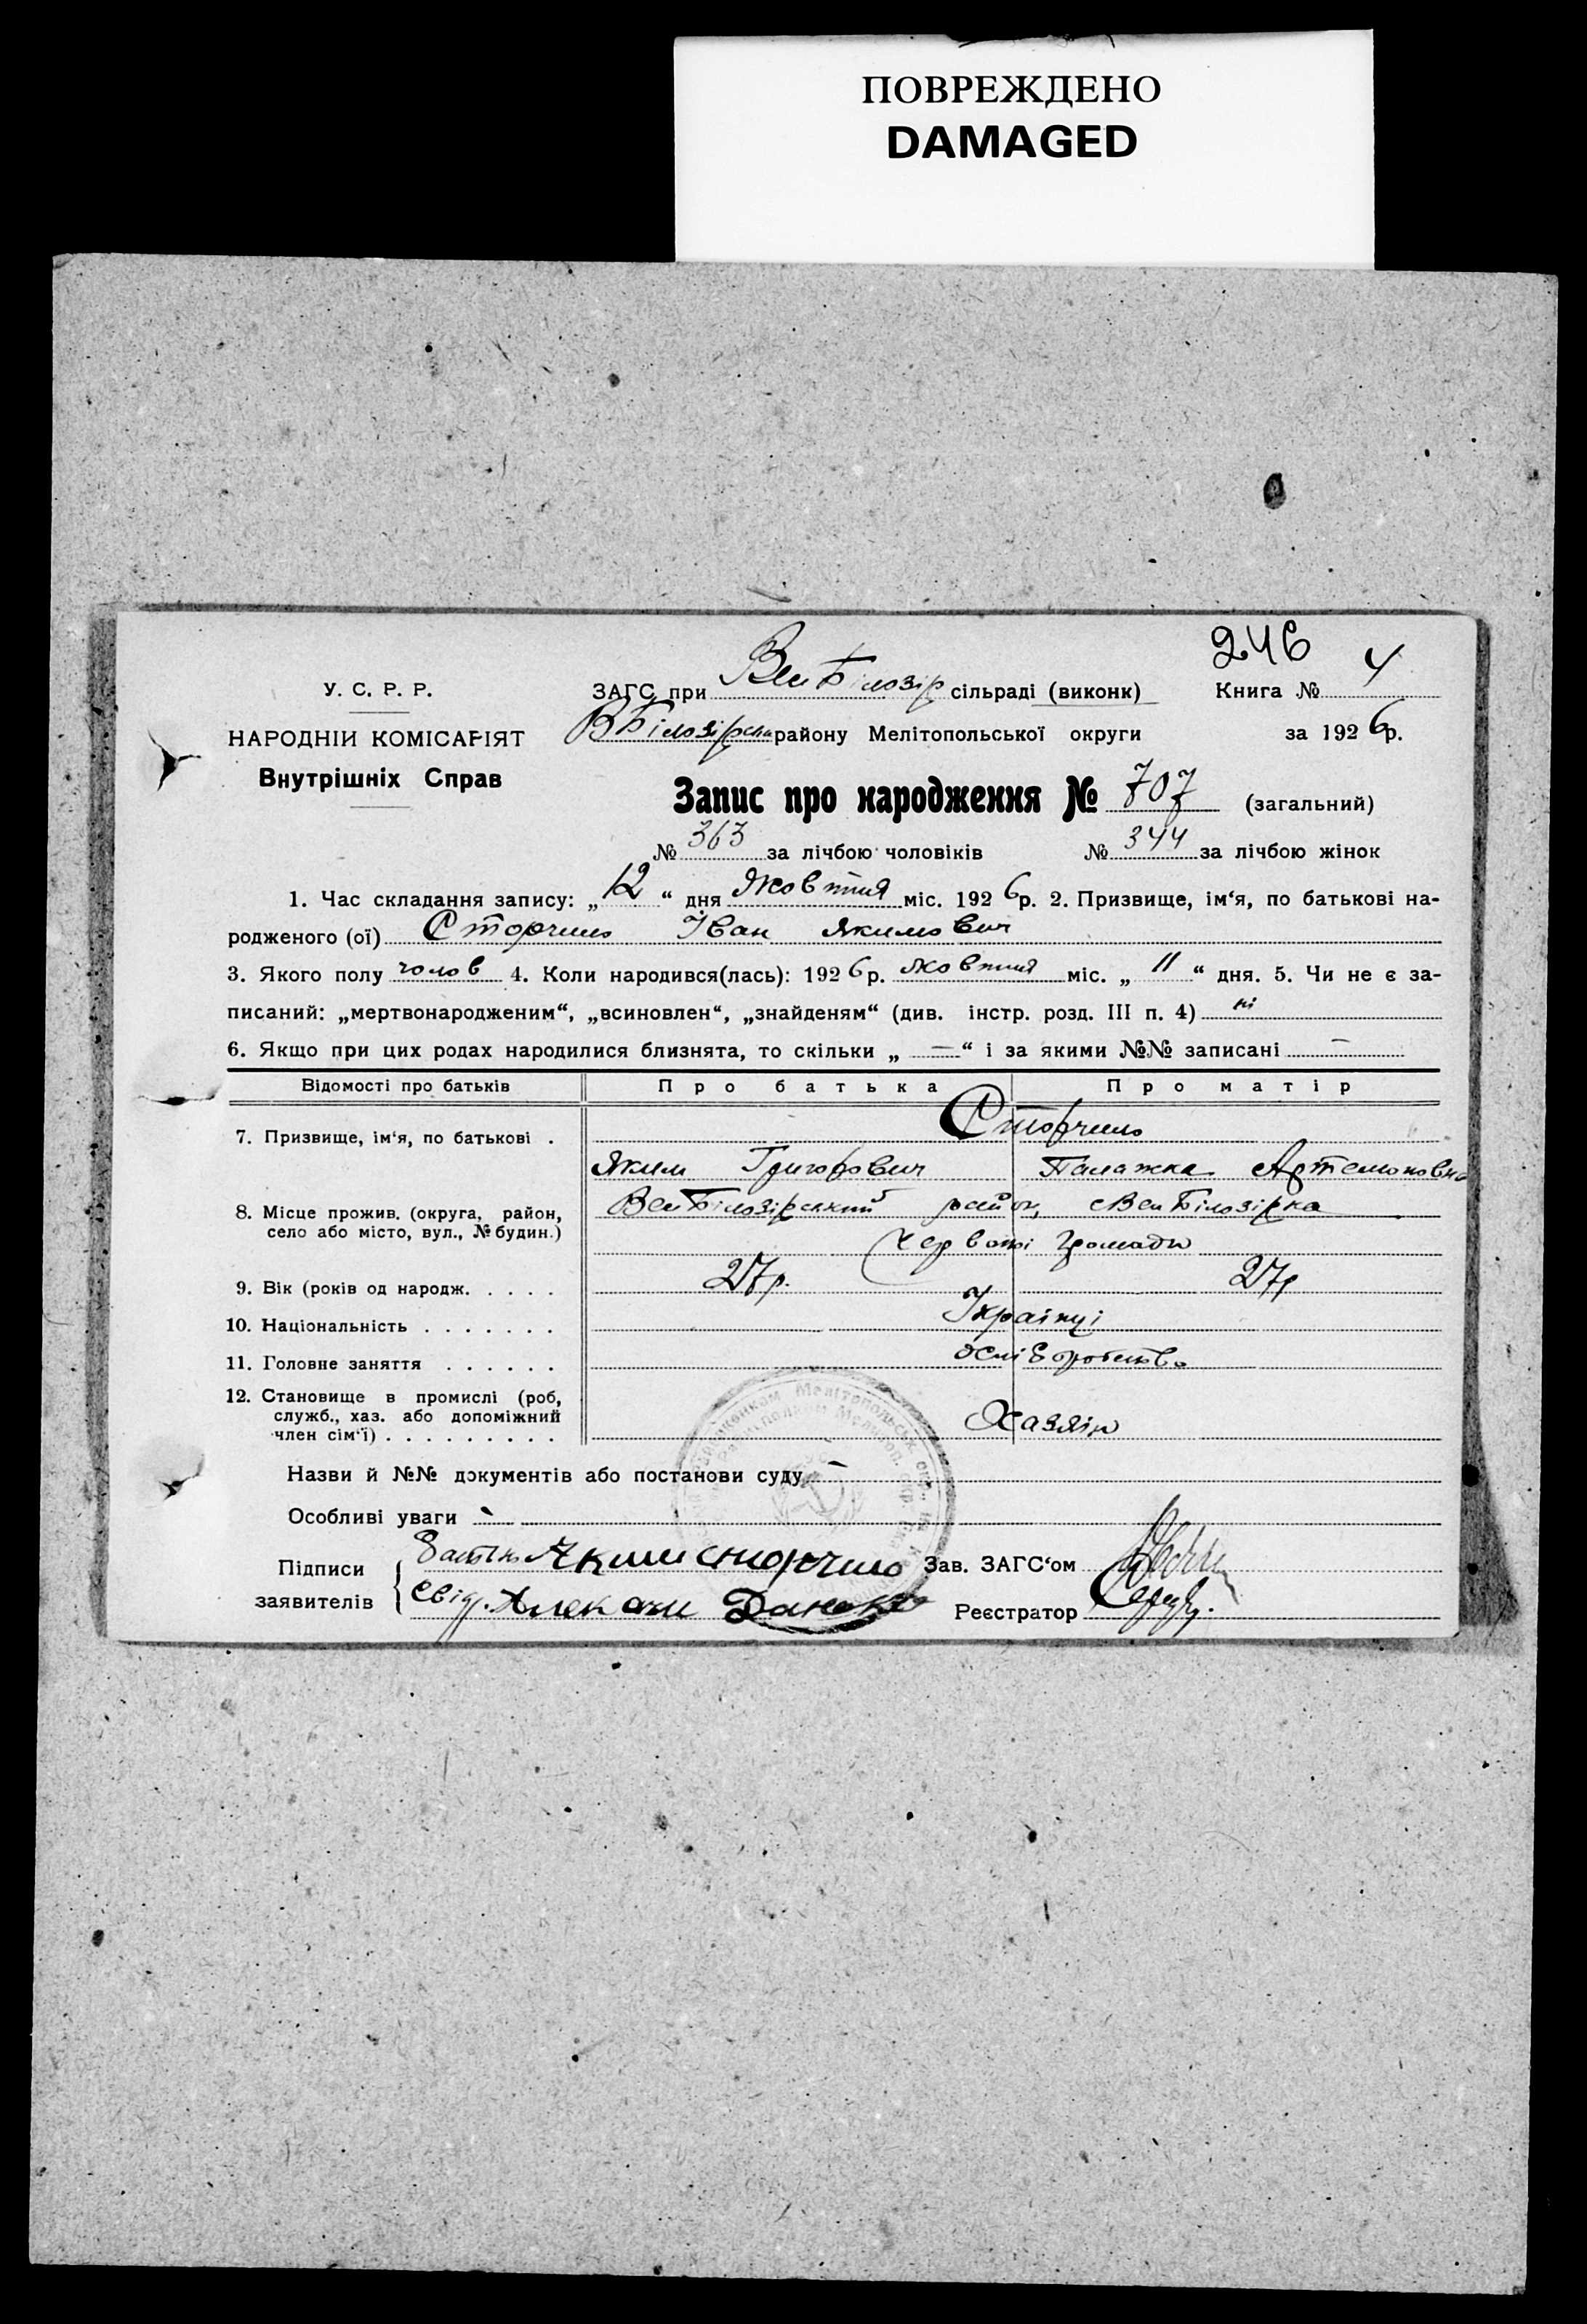 ПОВРЕЖДЕНО
DAMAGED
246
У. С. Р. Р.
НАРОДНІЙ КОМІСАРІЯТ
Внутрішніх Справ
ЗАГС при Вел Білозір сільраді (виконк) Книга № 4
В Білозірськ району Мелітопольської округи за 1926 р.
Запис про народження № 707 (загальний)
№ 363 за лічбою чоловіків № 344 за лічбою жінок
1. Час складання запису: „12“ дня Жовтня міс. 1926 р. 2. Призвище, ім‘я, по батькові на-
родженого (ої) Сторчило Іван Якимович
3. Якого полу чолов 4. Коли народився(лась): 1926 р. Жовтня міс. „11“ дня. 5. Чи не є за-
писаний: „мертвонародженим“, „всиновлен“, „знайденям“ (див. інстр. розд. III п. 4) ні
6. Якщо при цих родах народилися близнята, то скільки „—“ і за якими №№ записані —
Відомості про батьків Про батька Про матір
7. Призвище, ім‘я, по батькові . Сторчило
Яким Григорович Палажка Артемоновна
8. Місце прожив. (округа, район, Вел Білозірський район, с Вел Білозірка
село або місто, вул., № будин.)
Червоні громади
9. Вік (років од народж. . . . . 27 р. 27 р
10. Національність . . . . . . . Українці
11. Головне заняття . . . . . . хліборобство
12. Становище в промислі (роб,
служб., хаз. або допоміжний Хазяін
член сім‘ї) . . . . . . . . .
Назви й №№ документів або постанови суду —
Особливі уваги —
Підписи Батько Яким Сторчило Зав. ЗАГС‘ом
заявителів Свід. Данско Реєстратор